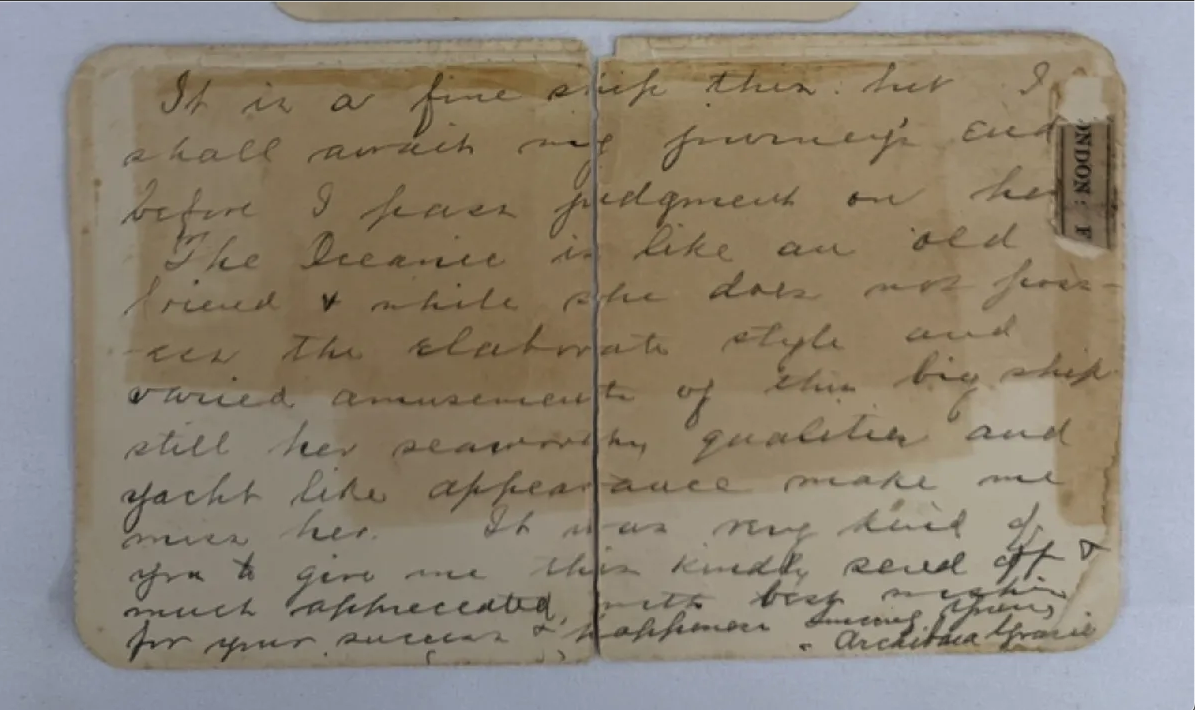 It is a fine ship this: but I
shall await my journey's end
before I pass judgment on her
The Oceanic is like an old
friend & while she does not poss-
-ess the elaborate style and
varied amusements of this big ship
still her seaworthy qualities and
yacht like appearance make me
miss her. It was very kind of
you to give me this kindly send off &
much appreciated, with best wishes
for your success & happiness Sincerely yours
- Archibald Gracie
ONDON: F